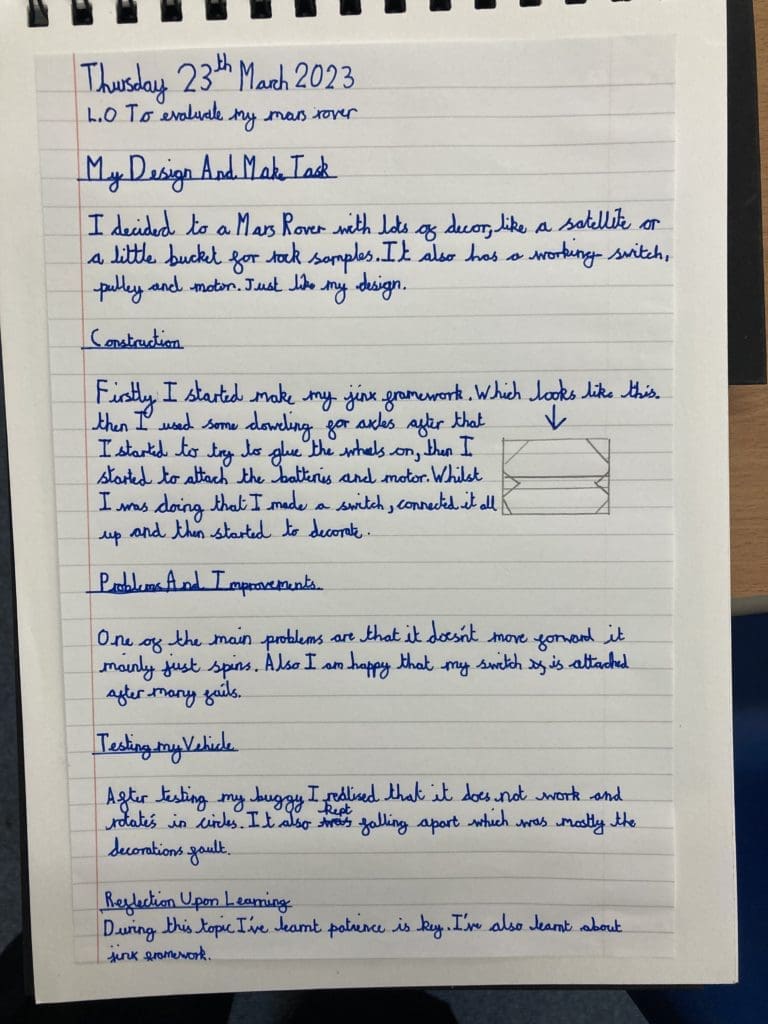 Thusday 23th March 2023
L.O To evaluate my mars rover
My Design And Make Task
I decided to a Mars Rover with lots of decor, like a satellite or
a little bucket for rock samples. It also has a working switch,
pulley and motor. Just like my design.
Construction
Firstly I started make my jinx framework. Which looks like this.
then I used some doweling for axles after that
I started to try to glue the wheels on, then I
started to attach the batteries and motor. Whilst
I was doing that I made a switch, connected it all
up and then started to decorate.
Problems And Improvements
One of the main problems are that it doesn't move forward it
mainly just spins. Also I am happy that my switch is attached
after many fails.
Testing my Vehicle
After testing my buggy I realised that it does not work and
rotates in circles. It also kept falling apart which was mostly the
decorations fault.
Reflection Upon Learning
During this topic I've learnt patience is key. I've also learnt about
jinx framework.